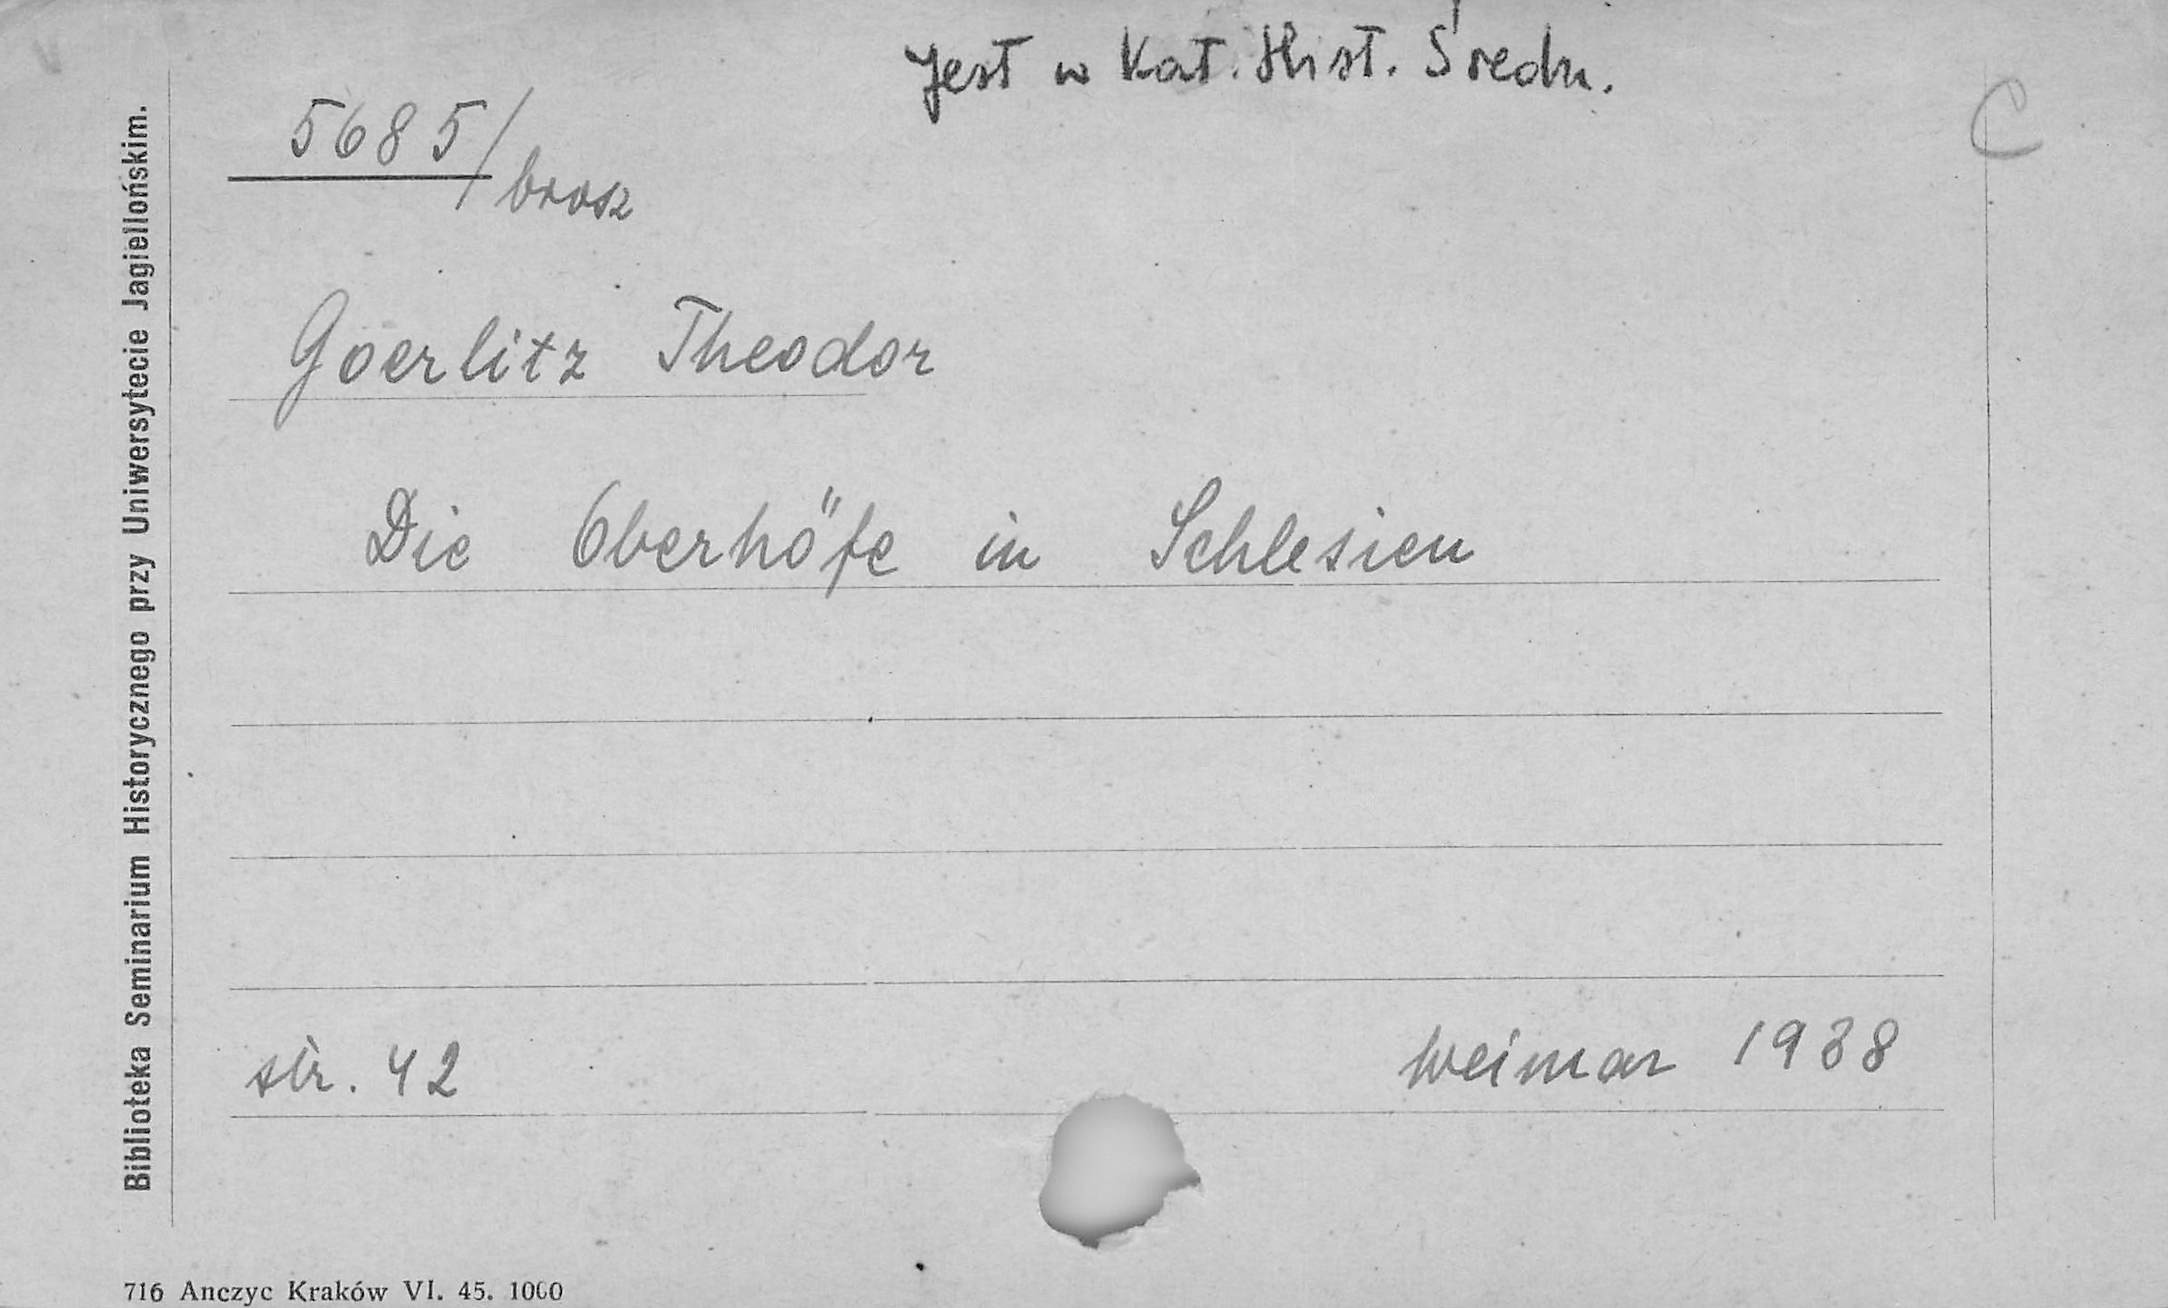 Jest w Kat. Hist. Średn.
C
5685/brosz
Goerlitz Theodor
Die Oberhöfe in Schlesien
str. 42
Weimar 1938
Biblioteka Seminarium Historycznego przy Uniwersytecie Jagiellońskim.
716 Anczyc Kraków VI. 45. 1000